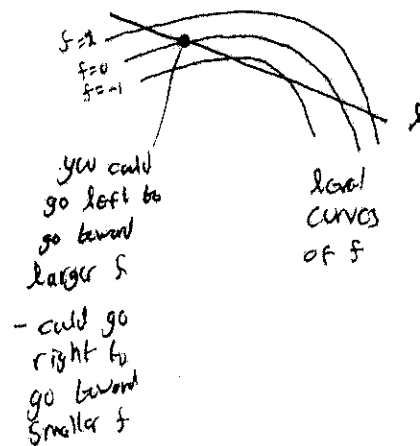 f=0
f=-1
you could
go left to
go toward
larger f
- could go
right to
go toward
smaller f
level
curves
of f